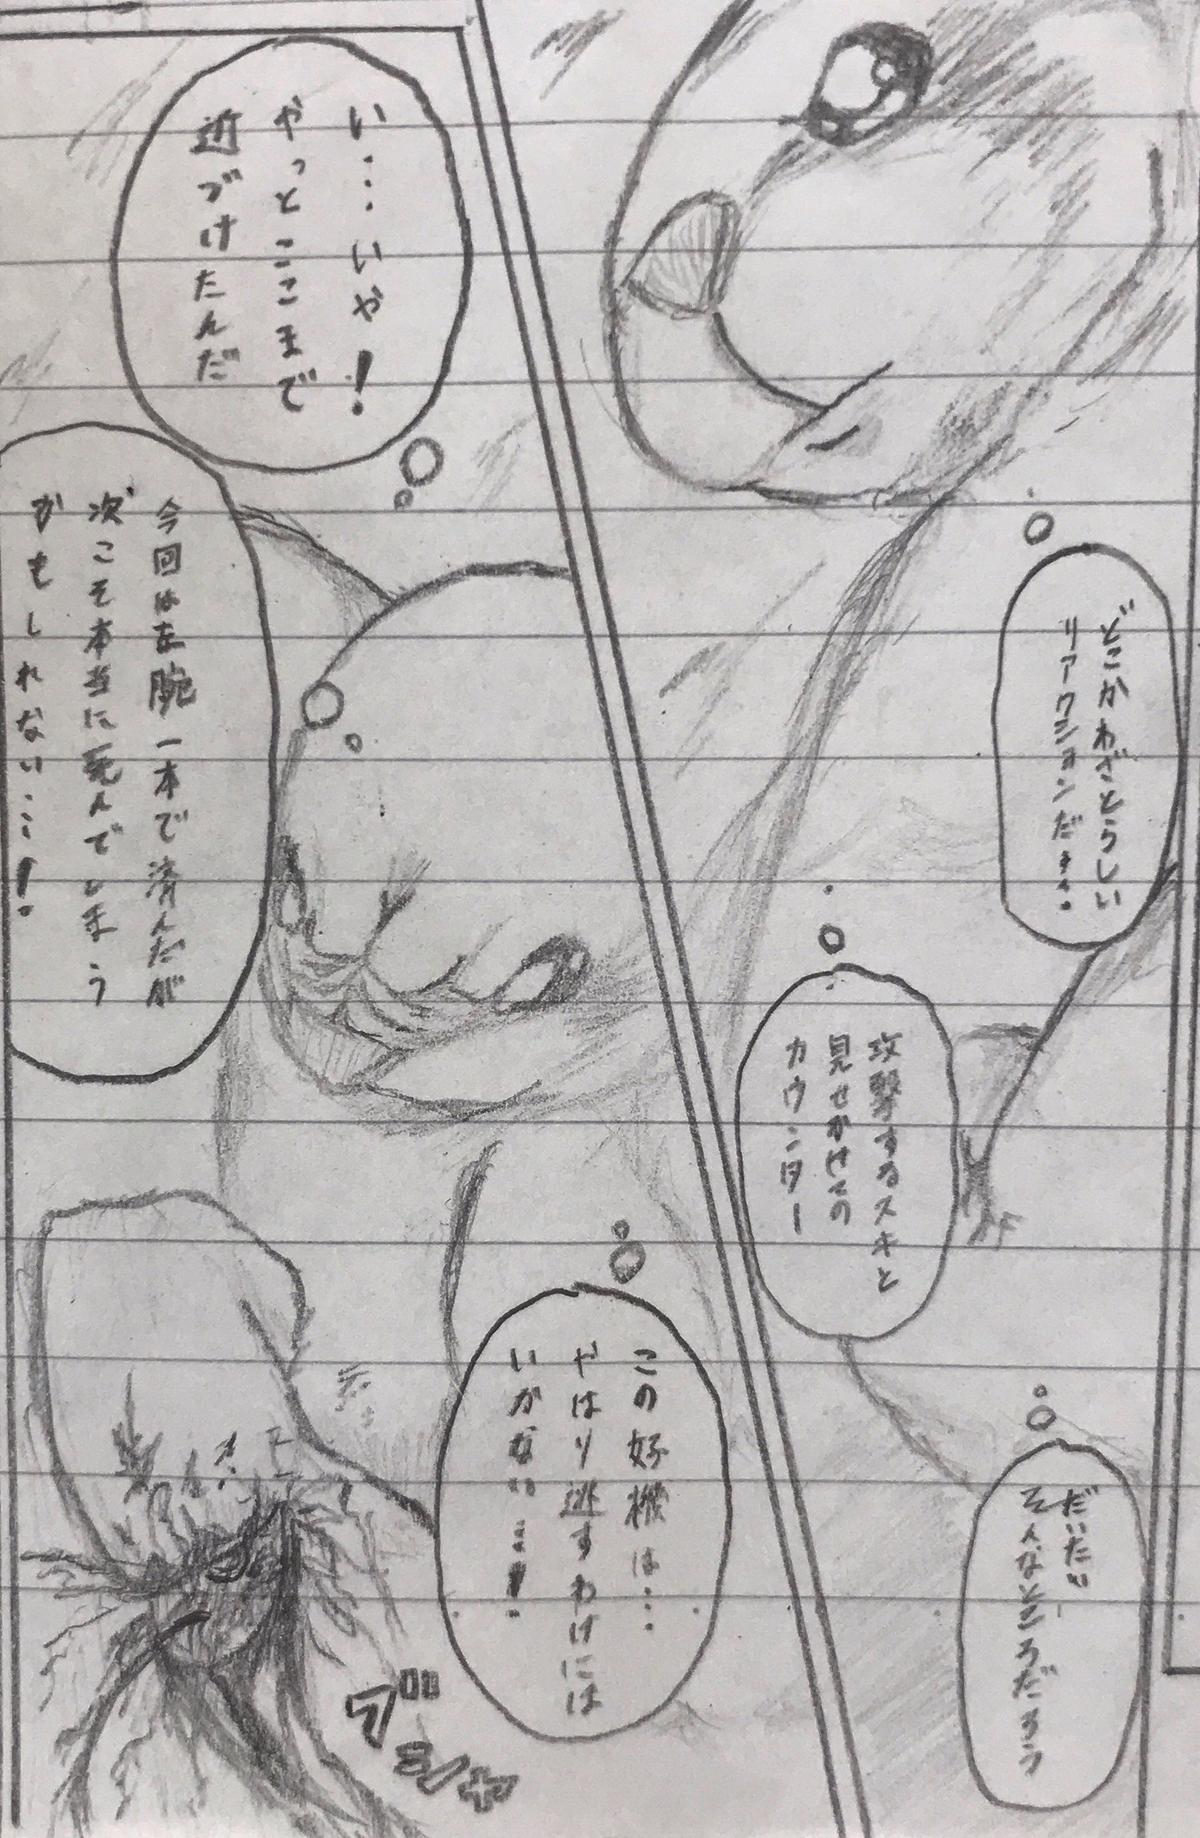 どこかわざとらしい
リアクションだ…。
攻撃するスキと
見せかけての
カウンター
だいたい
そんなところだろう
い…いや！
やっとここまで
近づけたんだ
今回は左腕一本で済んだが
次こそ本当に死んでしまう
かもしれない…！
この好機は…
やはり逃すわけには
いかない…！
ブシャ